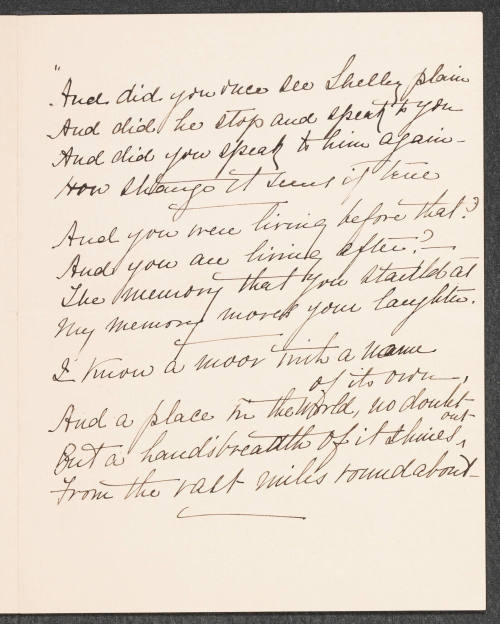 "And did you once see Shelley plain
And did he stop and speak to you
And did you speak to him again-
How strange it seems if true
And you were living before that?
And you are living after?-
The memory that you started at
My memory moves your laughter.
I know a moor with a name
of its own,
And a place in the world, no doubt
But a hand's breadth of it shines out,
From the vast miles round about-